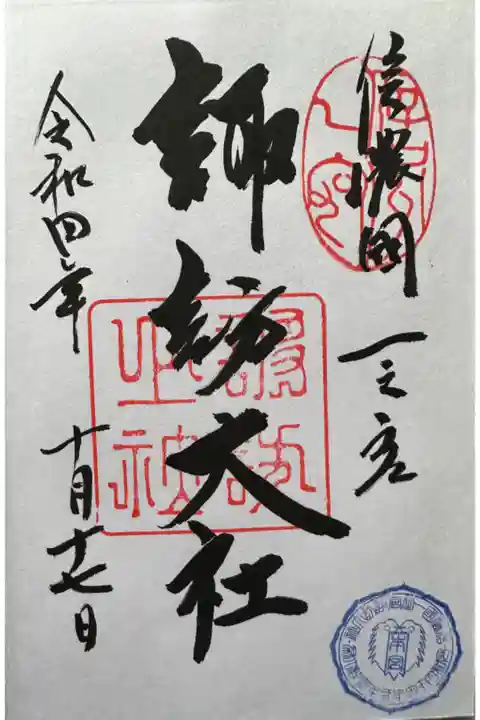 信濃國
一之宮
諏訪大社
令和四年
十月十七日
南宮